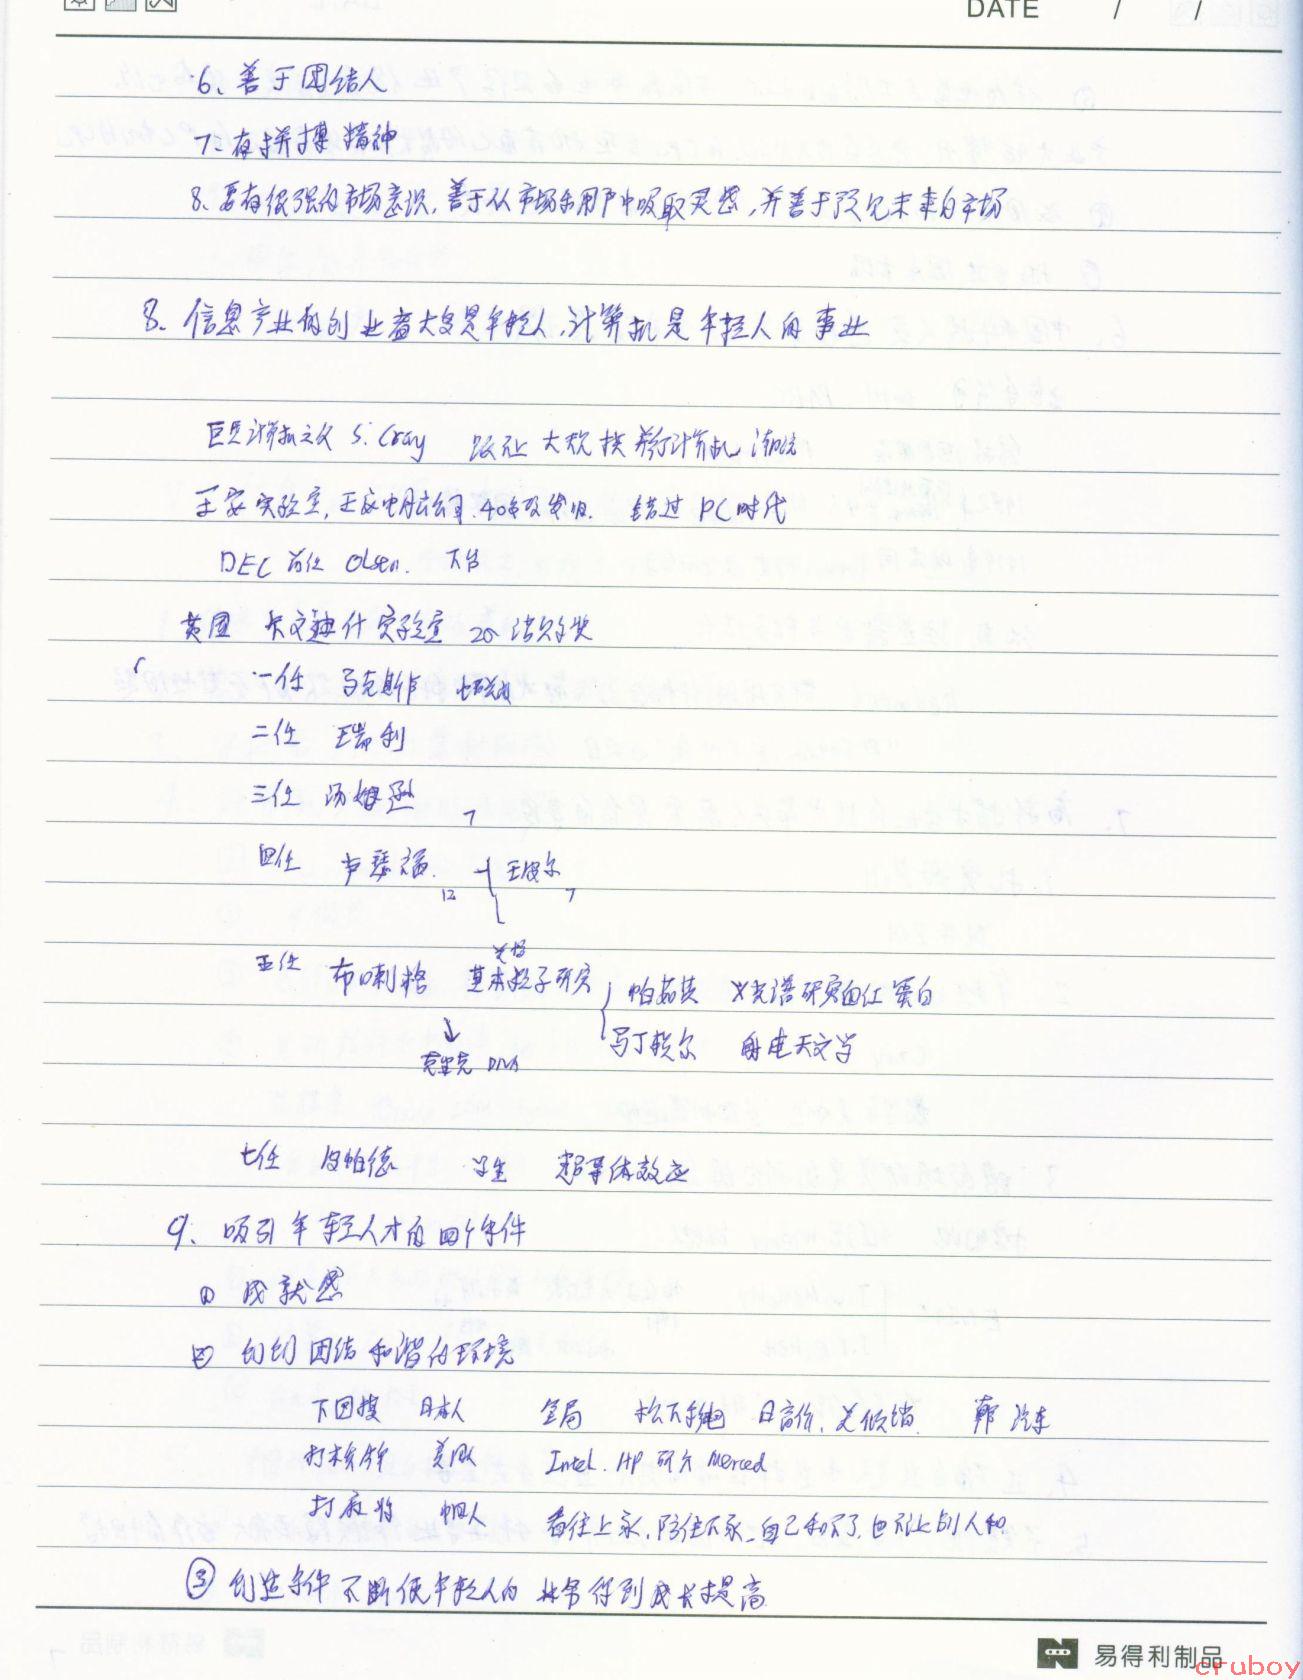 DATE / /
6、善于团结人
7、有拼搏精神
8、要有很强的市场意识,善于从市场和用户中吸取灵感,并善于预见未来的市场
8、信息产业的创业者大多是年轻人,计算机是年轻人的事业
巨型计算机之父 S. Cray 大规模并行计算机潮流
王安实验室,王安电脑公司.40多岁发明. 错过 PC时代
DEC 前任 Olsen. 下台
英国 卡文迪什实验室 26 诺贝尔奖
一任 马克斯韦 电磁
二任 瑞利
三任 汤姆逊 7
四任 卢瑟福. 12 王波尔 7
五任 布喇格 基本粒子研究 帕茹兹 X光谱研究血红蛋白
马丁赖尔 射电天文学
克里克 DNA
七任 皮帕德 学生 超导体效应
9. 吸引年轻人才的四个条件
① 成就感
② 创造团结和谐的环境
下围棋 日本人 全局 松下继电 日高价,美倾销. 韩 汽车
打桥牌 美国人 Intel. HP 研究 Merced
打麻将 中国人 看住上家,防住下家,自己和不了,也不让别人和
③ 创造条件不断使年轻人的业务得到成长提高
易得利制品
cruboy